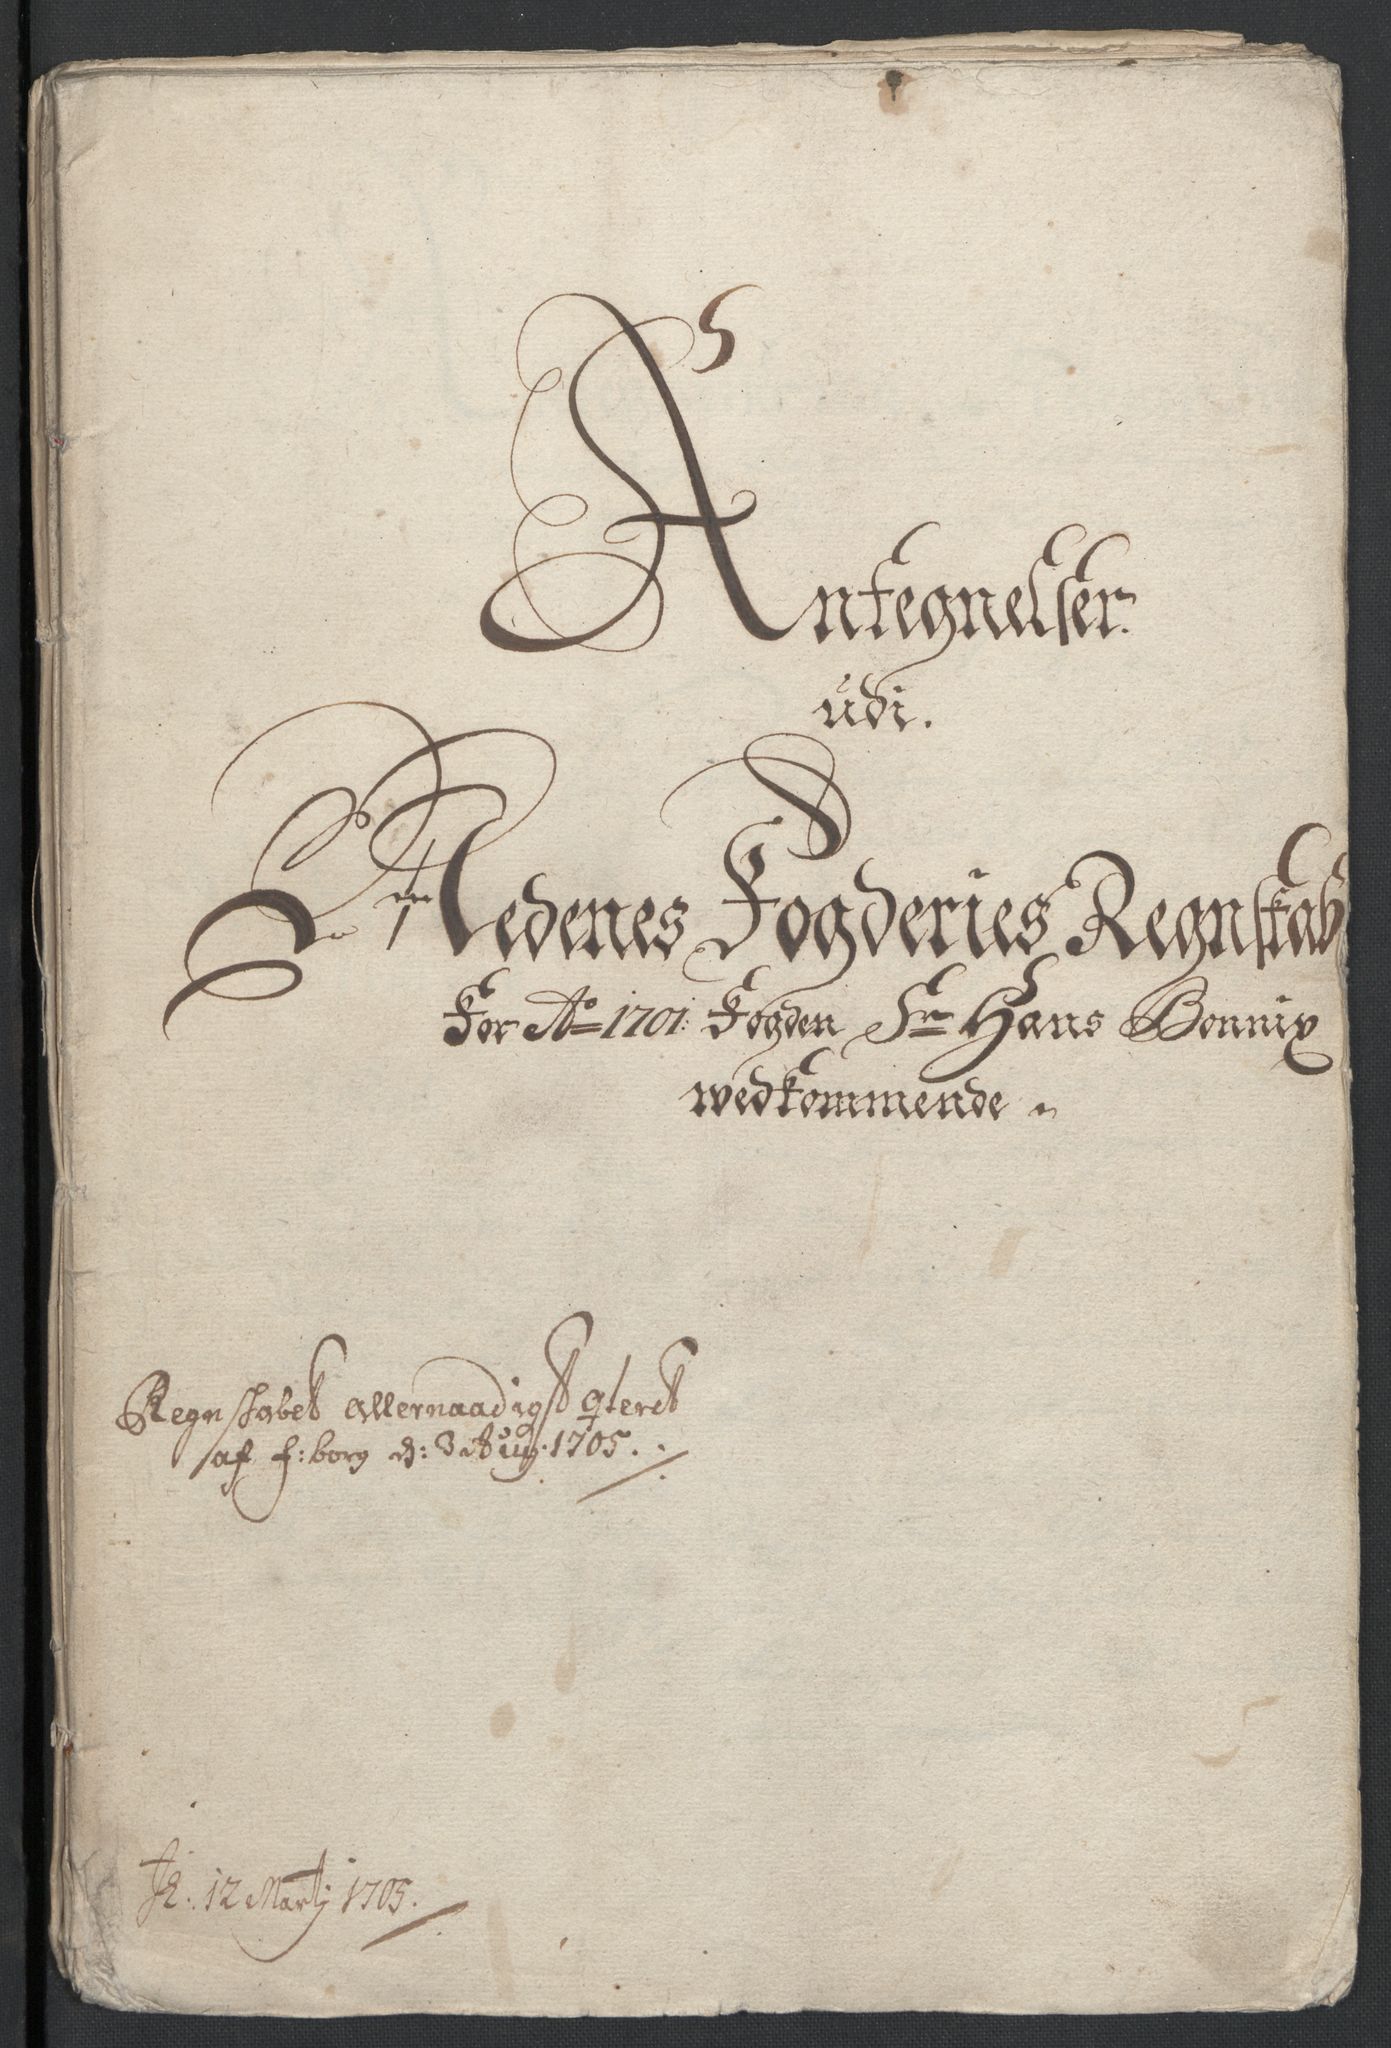 Antegnelser.
udi.
Nedenes Fogderies Regnskab
For Ao 1701. Fogden Sr Hans Bonnix
wedkommende
Regnskabet allernaadigst qteret
af f:borg d: 3 Aug. 1705.
12 Martj 1705.